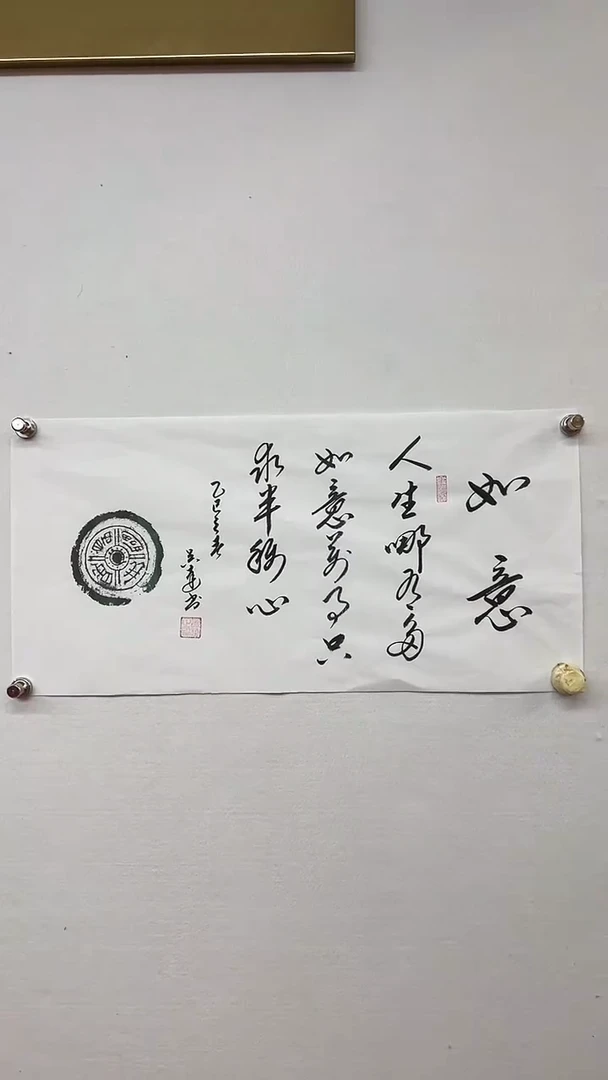 如意
人生哪有多
如意万事只
求半称心
乙巳之春